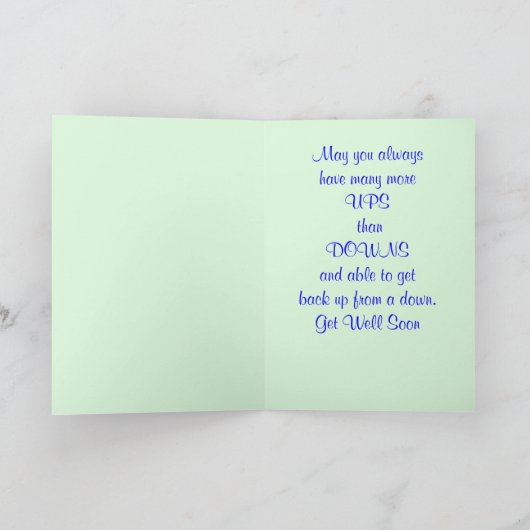 May you always
have many more
UPS
than
DOWNS
and able to get
back up from a down.
Get Well Soon